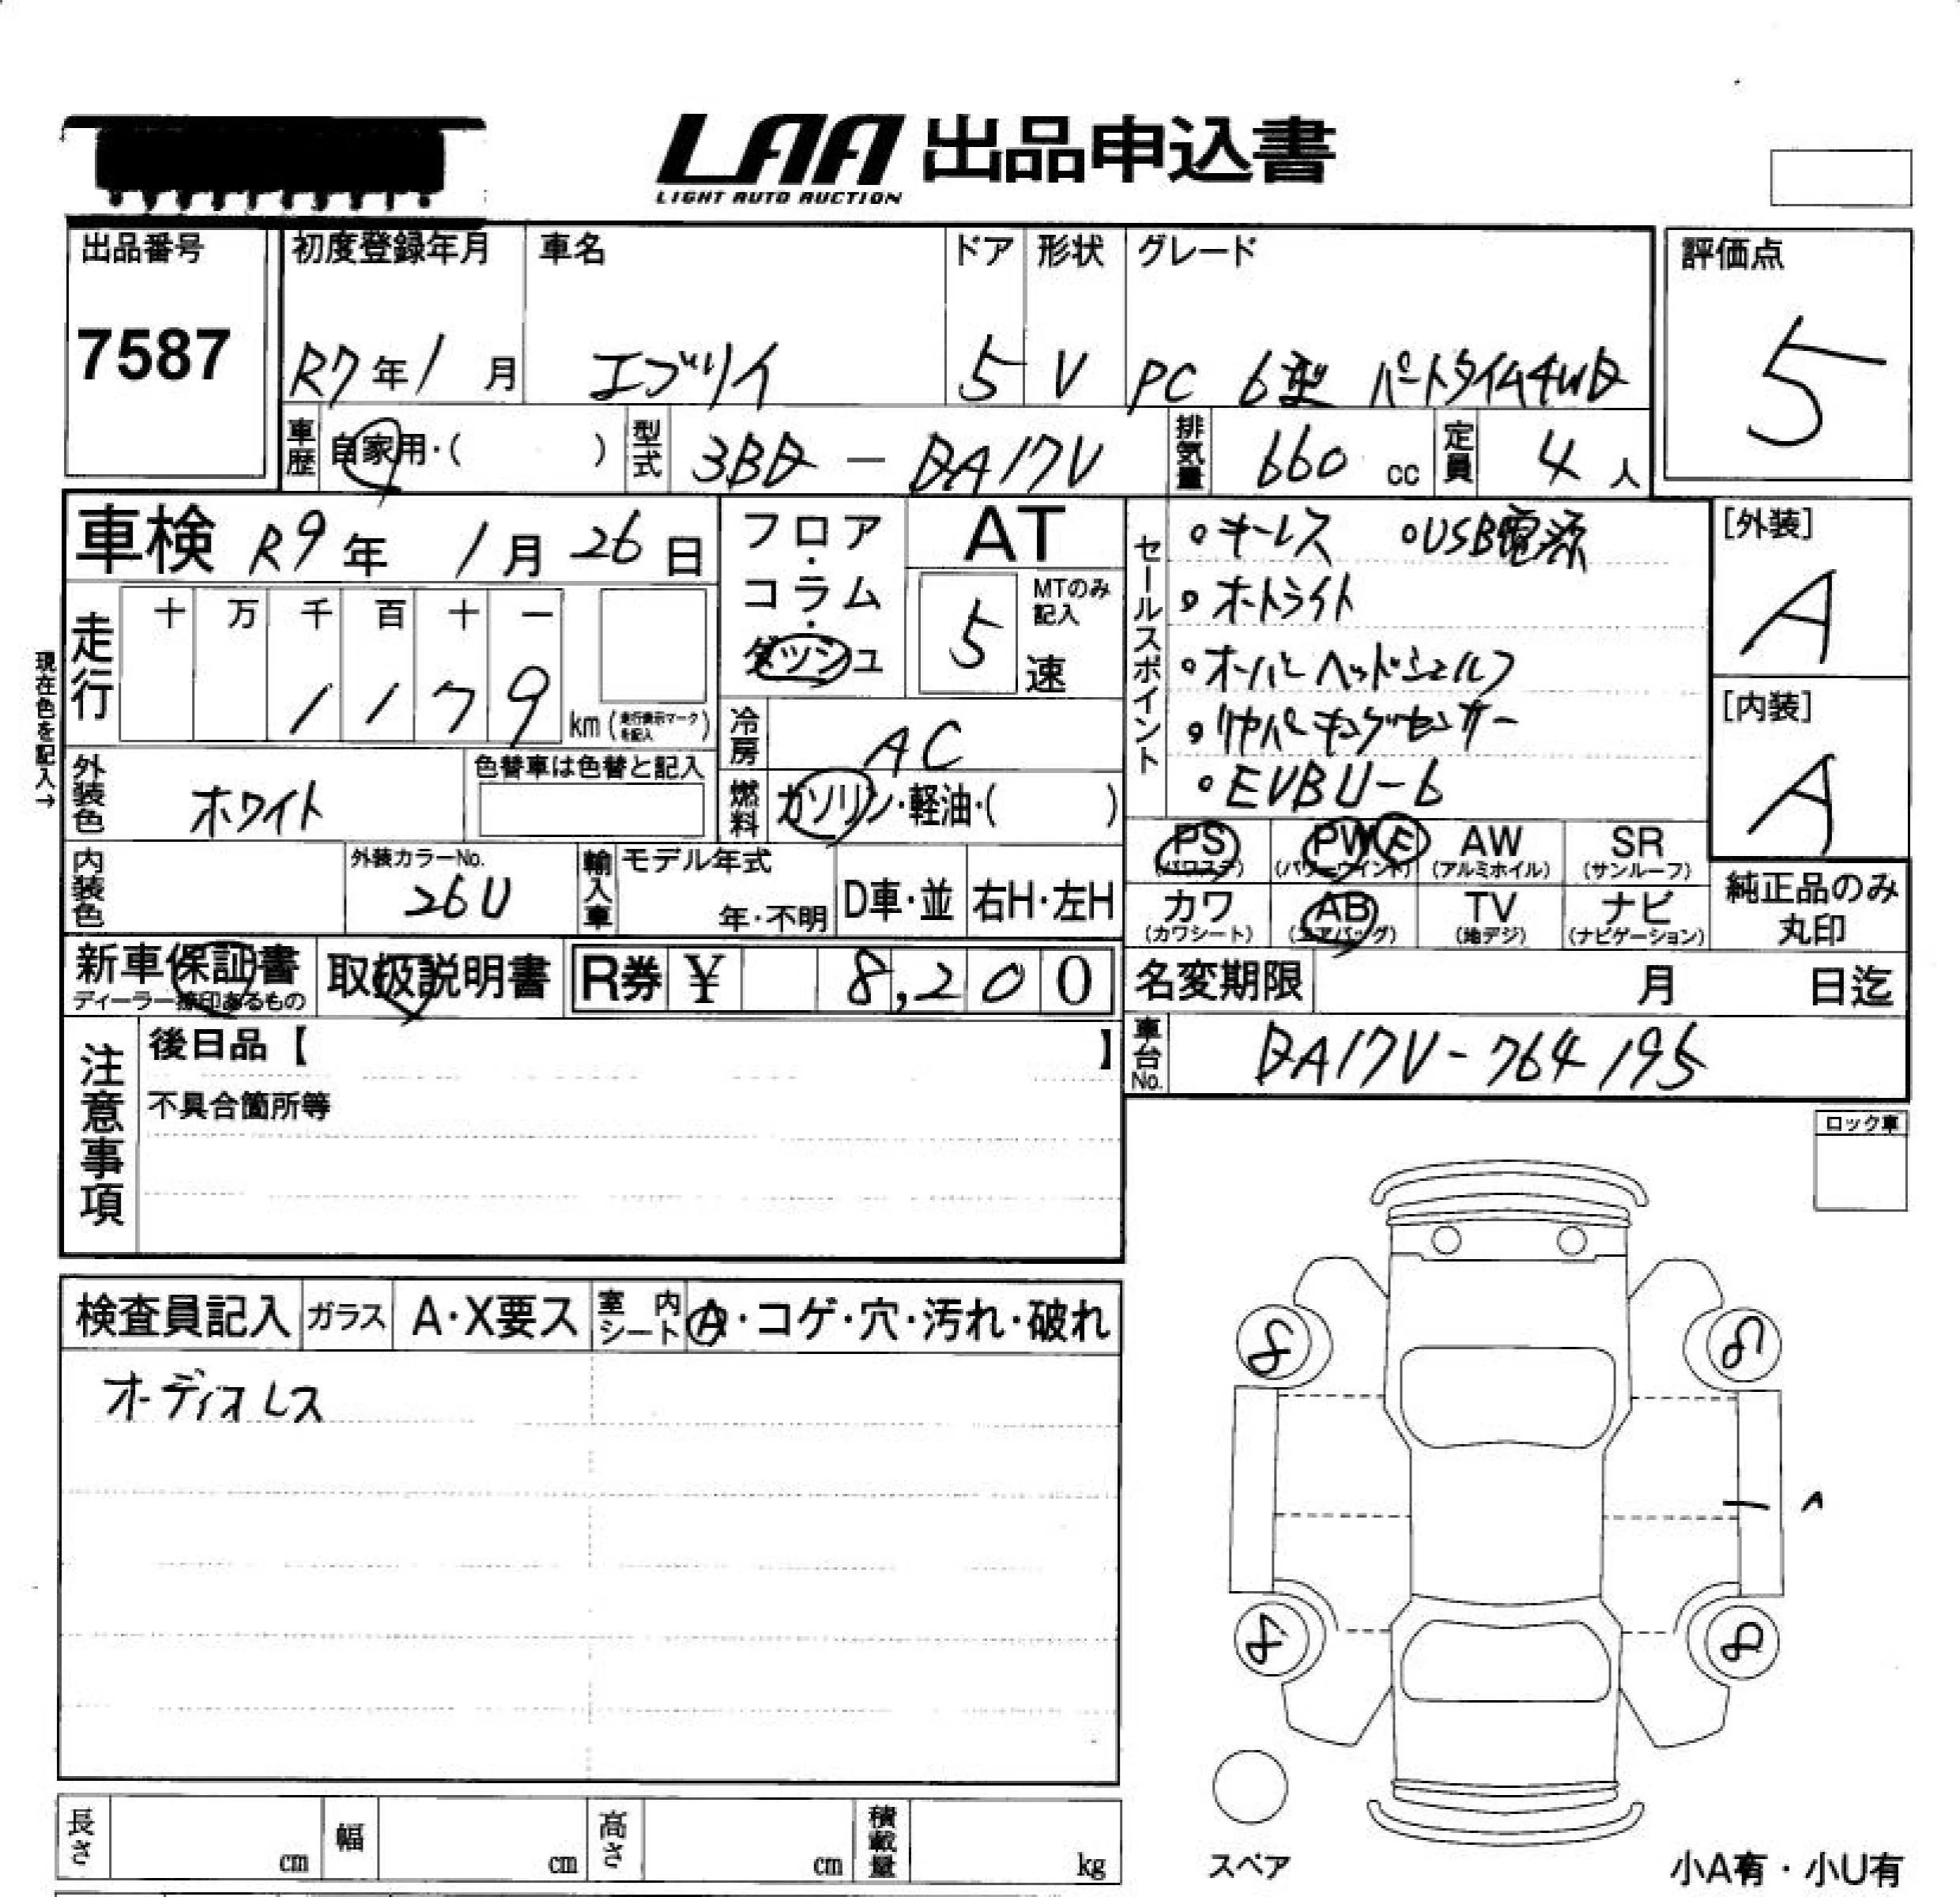 LAA 出品申込書
LIGHT AUTO AUCTION
出品番号
7587
初度登録年月
R7年1月
車名
エブリイ
ドア
5
形状
V
グレード
PC 6型 パートタイム4WD
評価点
5
車歴
自家用・( )
型式
3BD - DA17V
排気量
660 cc
定員
4人
車検 R9年 1月 26日
現在色を記入→
走行
十 万 千 百 十 一
1 1 7 9
km (走行表示マークを記入)
フロア・コラム・ダッシュ
AT
5速
MTのみ記入
セールスポイント
・キーレス ・USB電源
・オートライト
・オーバーヘッドシェルフ
・リヤパーキングセンサー
・EVBU-6
[外装]
A
[内装]
A
冷房
AC
外装色
ホワイト
色替車は色替と記入
燃料
ガソリン・軽油・( )
内装色
外装カラーNo.
26U
輸入車
モデル年式
年・不明
D車・並
右H・左H
PS
(パワステ)
PW F
(パワーウインド)
AW
(アルミホイル)
SR
(サンルーフ)
カワ
(カワシート)
AB
(エアバッグ)
TV
(地デジ)
ナビ
(ナビゲーション)
純正品のみ
丸印
新車保証書
ディーラー捺印あるもの
取扱説明書
R券 ¥ 8,200
名変期限 月 日迄
車台No.
DA17V-764195
注意事項
後日品【 】
不具合箇所等
ロック車
検査員記入
ガラス
A・X要ス
室内シート
A・コゲ・穴・汚れ・破れ
オーディオレス
8
8
8
8
長さ cm
幅 cm
高さ cm
積載量 kg
スペア
小A有・小U有